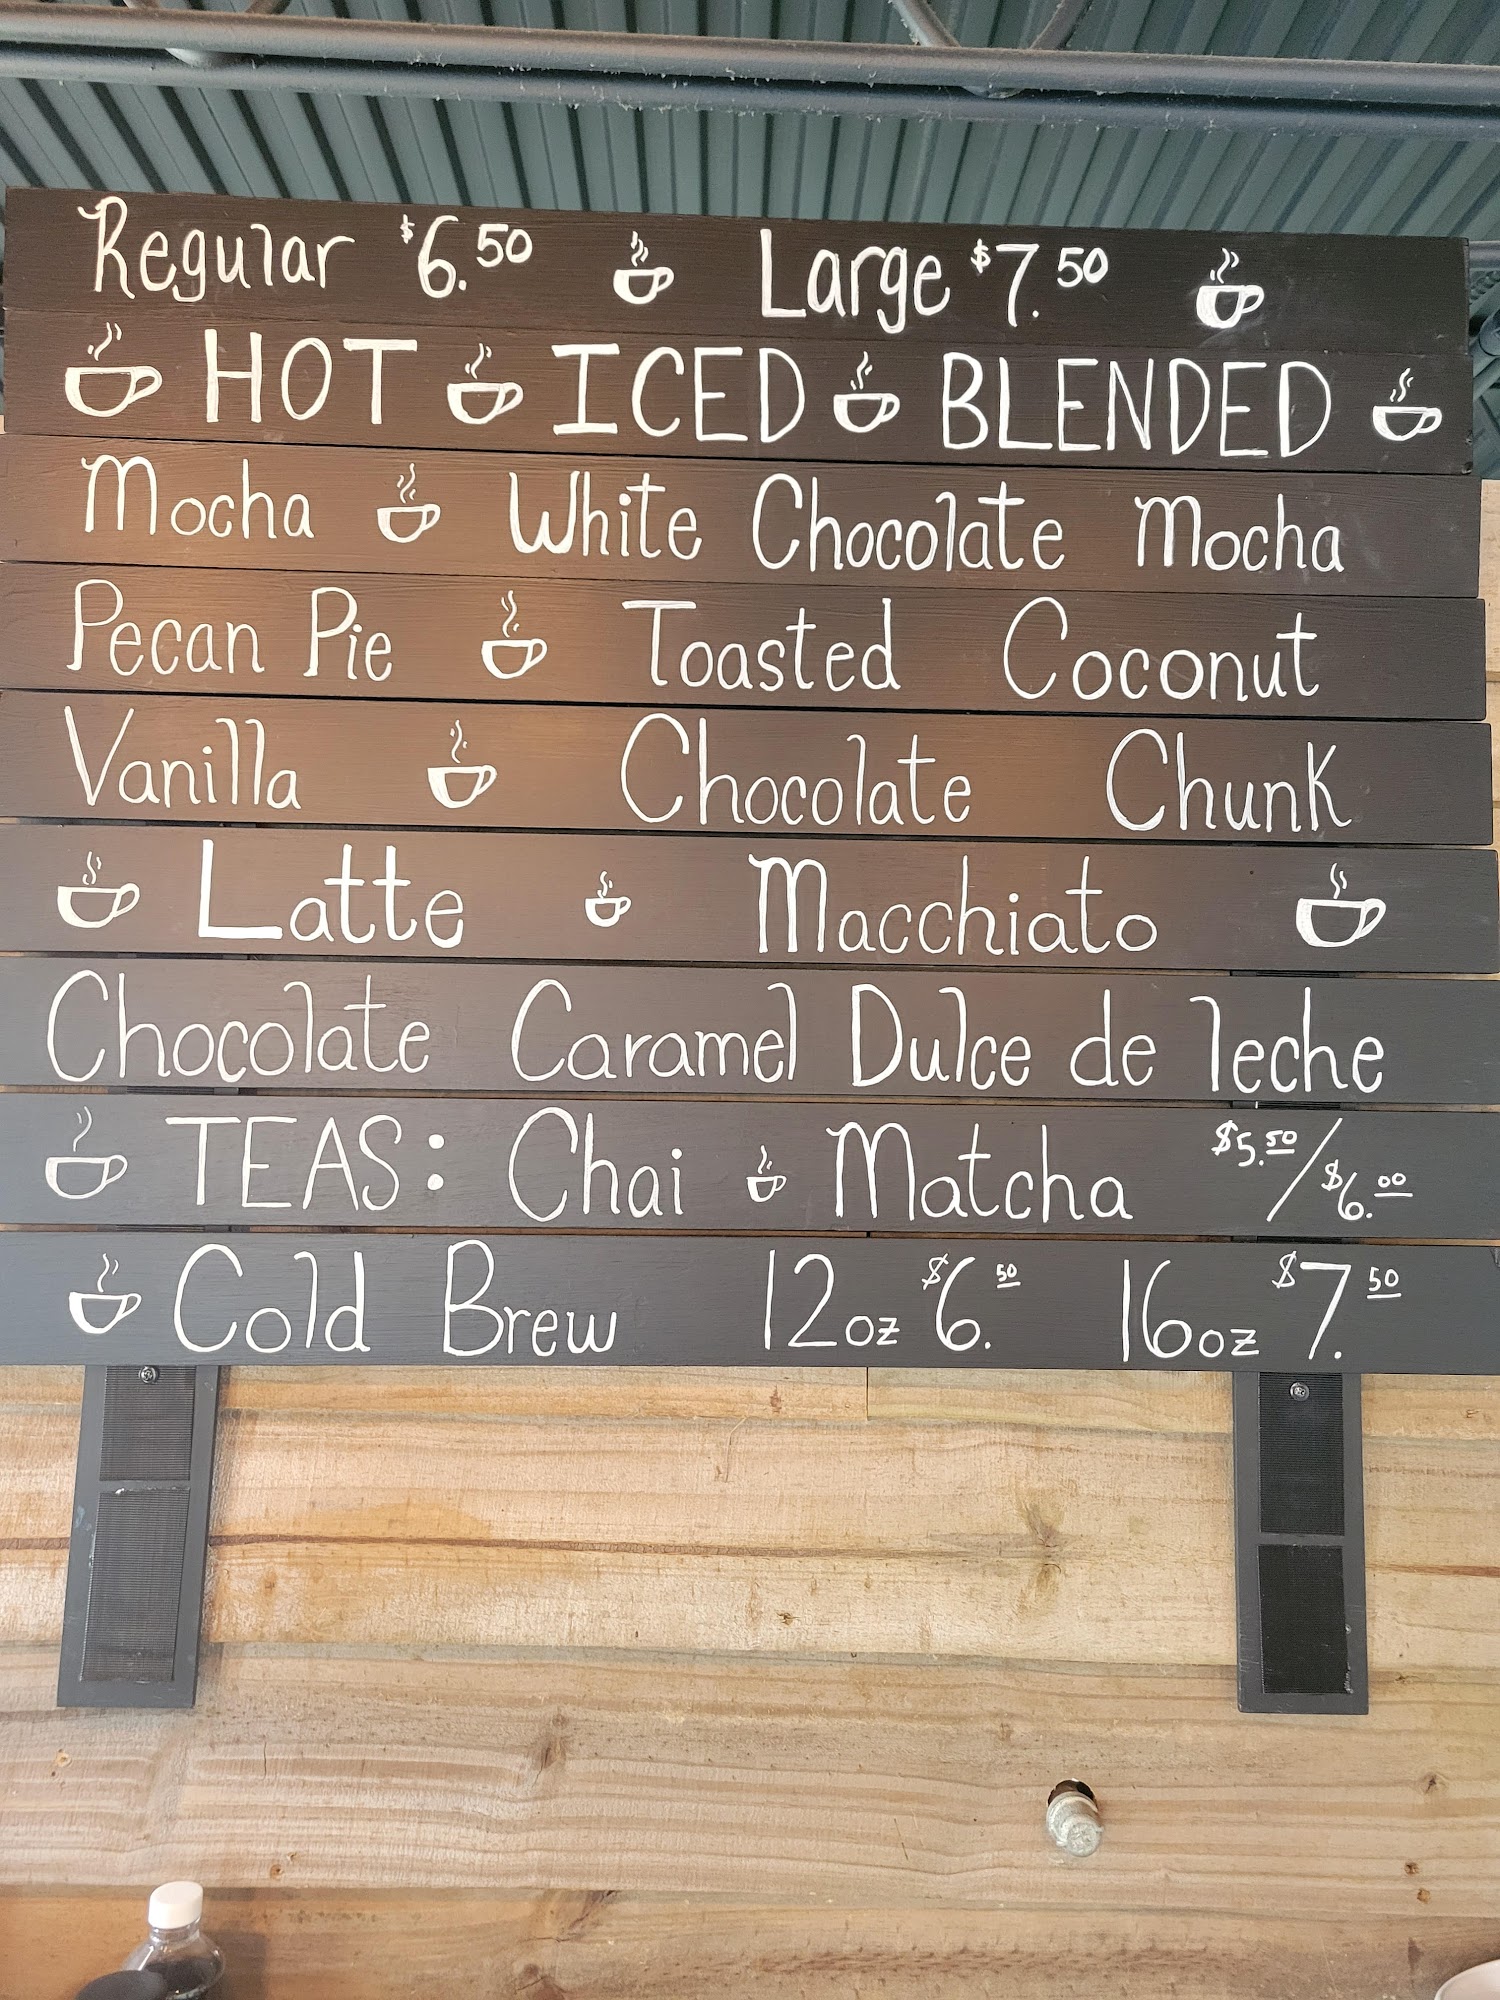 Regular $6.50 Large $7.50
HOT ICED BLENDED
Mocha White Chocolate Mocha
Pecan Pie Toasted Coconut
Vanilla Chocolate Chunk
Latte Macchiato
Chocolate Caramel Dulce de leche
TEAS: Chai Matcha $5.50/$6.00
Cold Brew 12oz $6.50 16oz $7.50